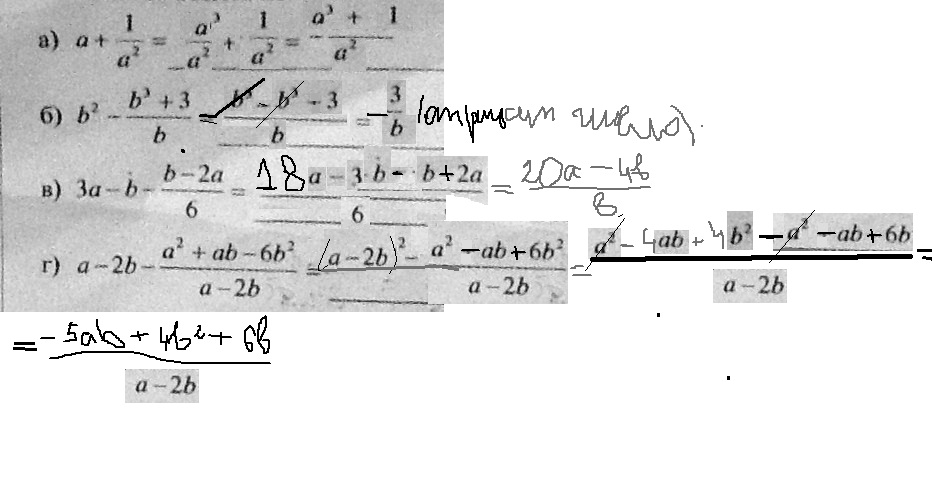 а) a + 1/a² = a³/a² + 1/a² = a³ + 1/a²
б) b² − b³ + 3/b = b³ − b³ − 3/b = − 3/b
в) 3a − b − b − 2a/6 = 18a − 3 b − b + 2a/6 = 20a − 4b/
г) a − 2b − a² + ab − 6b²/a − 2b = (a − 2b)² − a² − ab + 6b²/a − 2b = a² − 4ab + 4b² − a² − ab + 6b/a − 2b =
= −5ab + 4b² + 6b/a − 2b